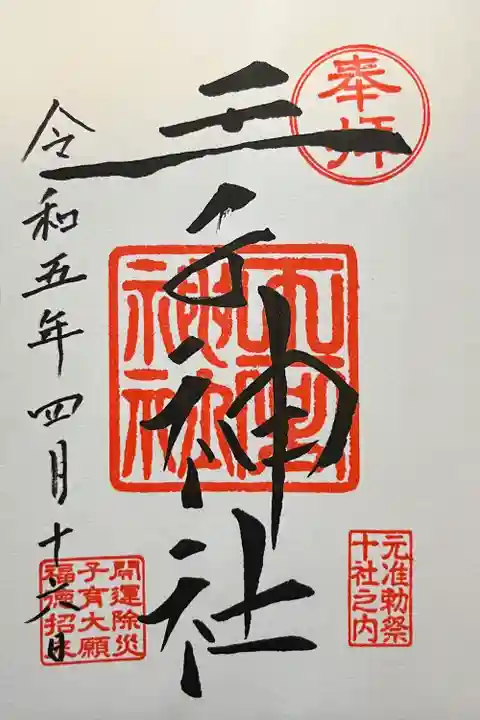 奉拝
王子神社
元准勅祭
十社之内
開運除災
子育大願
福徳招来
令和五年四月十六日